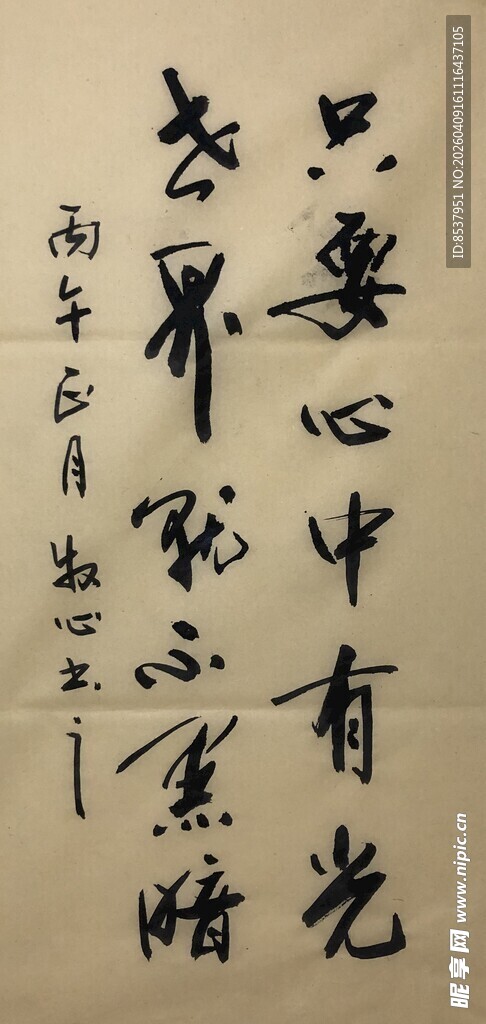 只要心中有光
世界就不黑暗
丙午正月牧心书之
ID:8537951 NO:20260409161116437105
昵享网 www.nipic.cn